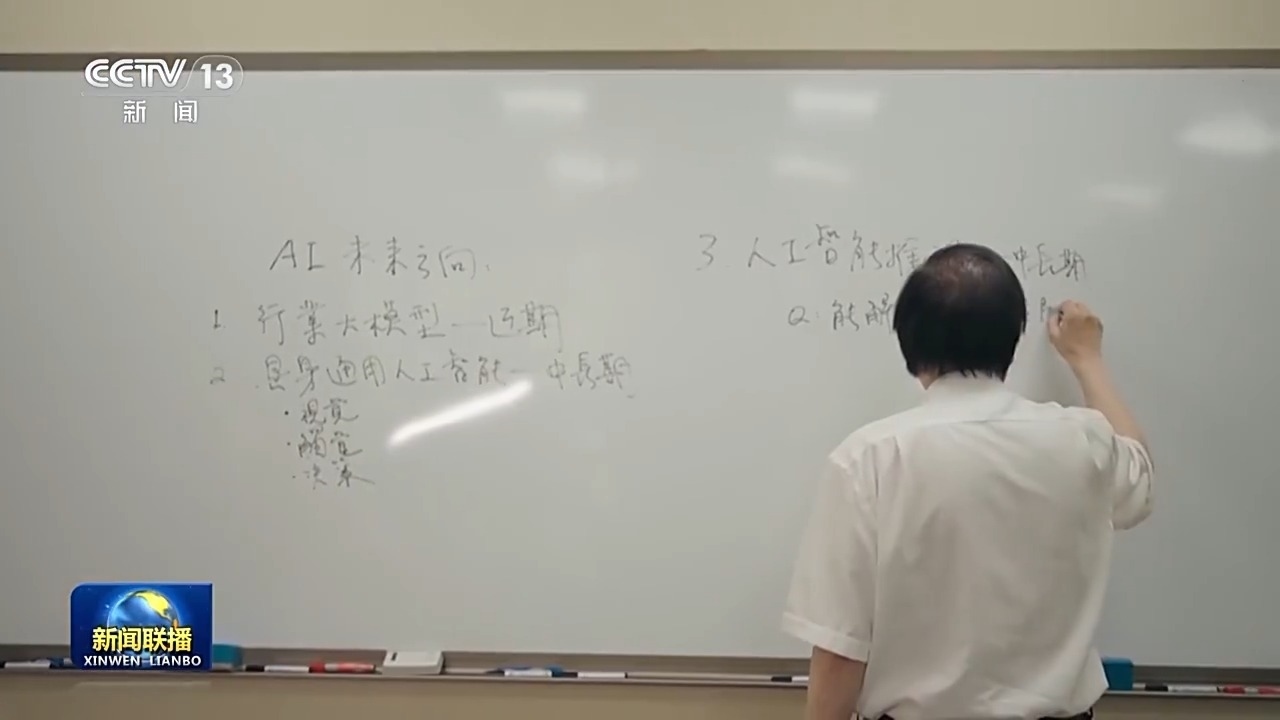 CCTV 13
新闻
AI 未来方向.
1. 行業大模型—近期
2. 具身通用人工智能—中長期
· 視覚
· 觸覚
· 决策
3. 人工智能推 中長期
Q: 能解
新闻联播
XINWEN LIANBO